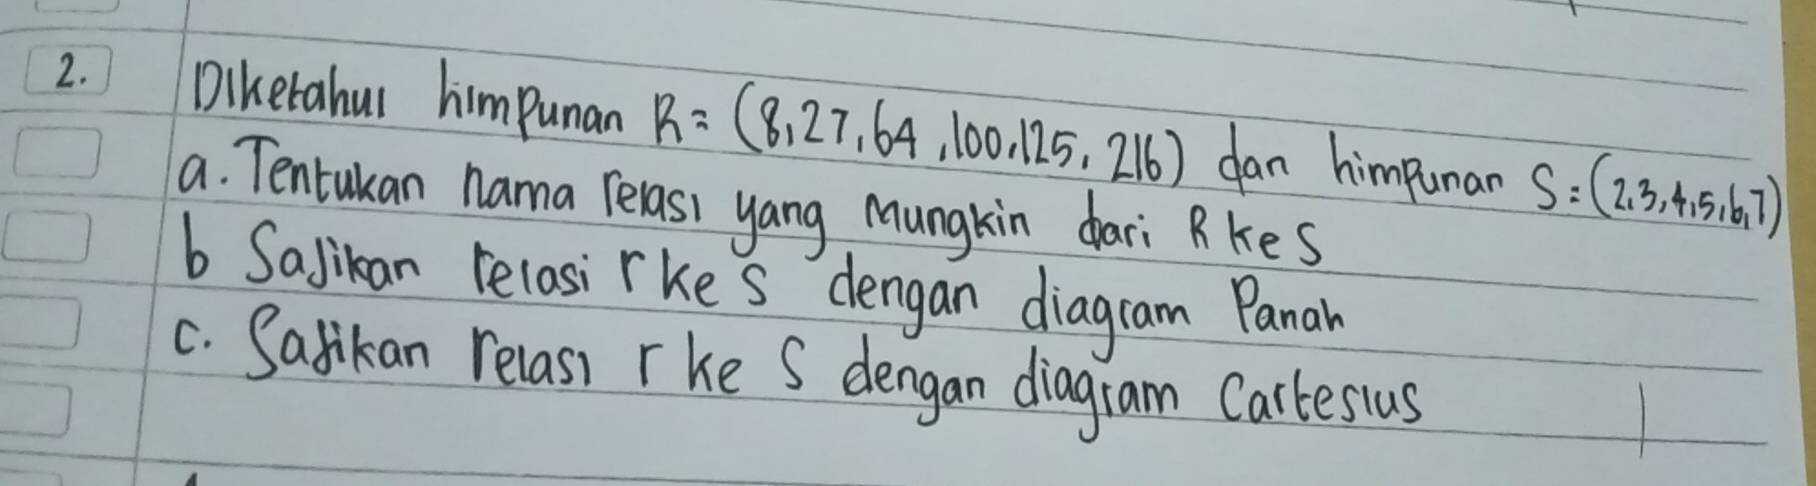 2. Diketahui himpunan R = (8,27,64,100,125,216) dan himpunan S = (2,3,4,5,6,7)
a. Tentukan nama relasi yang mungkin dari R ke S
b Sajikan relasi r ke s dengan diagram Panah
c. Sajikan relasi r ke S dengan diagram Cartesius